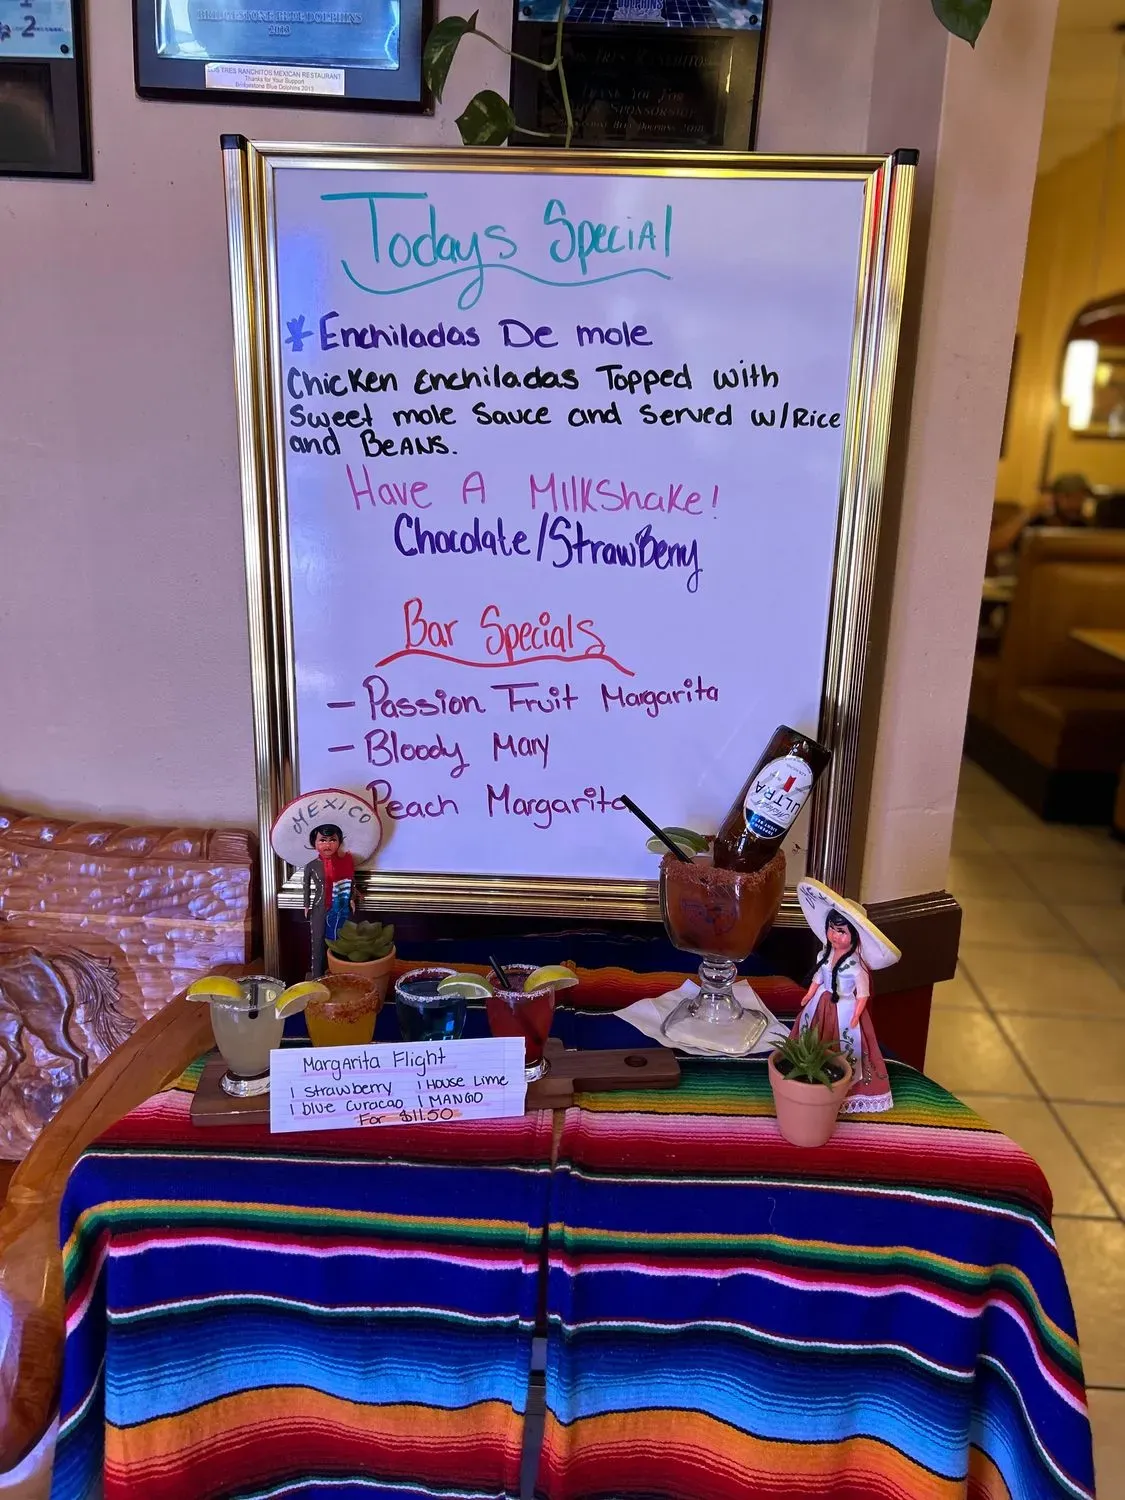 BRIDGESTONE BLUE DOLPHINS
2013
LOS TRES RANCHITOS MEXICAN RESTAURANT
Thanks for Your Support
Bridgestone Blue Dolphins 2013
DOLPHINS
TRES RANCHITOS
THANK YOU FOR
SPONSORSHIP
BLUE DOLPHINS
Todays Special
* Enchiladas De mole
Chicken Enchiladas Topped with
Sweet mole Sauce and Served w/Rice
and BeANS.
Have A MilkShake!
Chocolate/StrawBerry
Bar Specials
- Passion Fruit Margarita
- Bloody Mary
Peach Margarita
MEXICO
ULTRA
Margarita Flight
1 Strawberry 1 House Lime
1 blue Curacao 1 MANGO
For $11.50